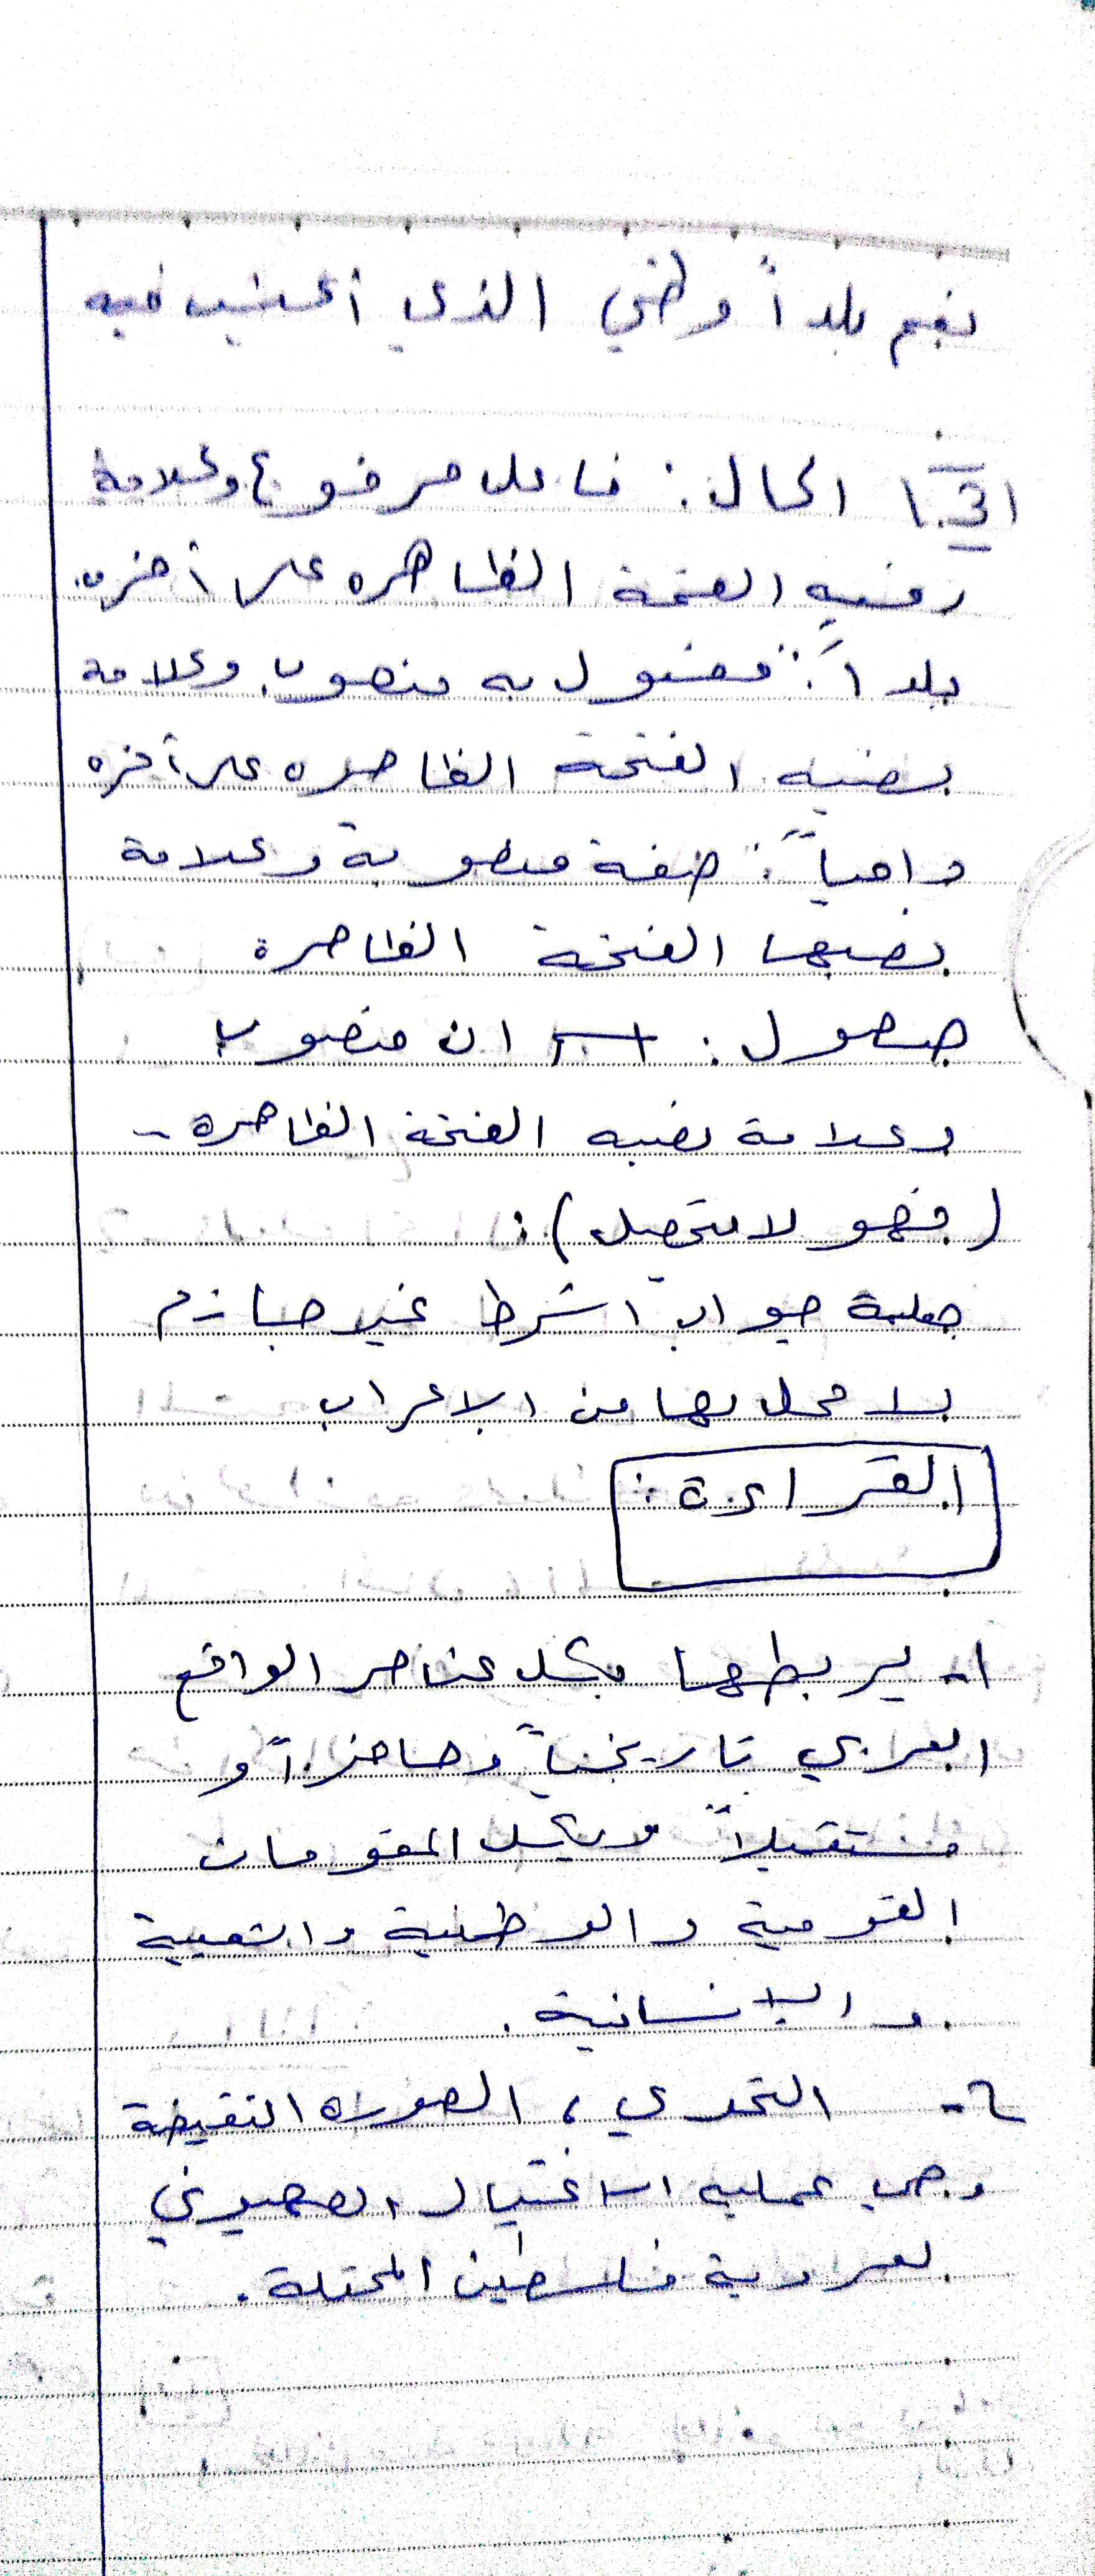 نعم بلداً وطني الذي أعيش فيه
ج3.ا الحال: فاعل مرفوع وعلامة
رفعه الضمة الظاهره على أخره.
بلداً: مفعول به منصوب وعلامة
نصبه الفتحة الظاهره على أخره
: صفة منصوبة وعلامة
نصبها الفتحة الظاهرة
: اسم ان منصوب
وعلامة نصبه الفتحة الظاهره -
(فهو لا ):
جملة جواب الشرط غير جازم
لا محل لها من الاعراب
القراءة:
١- يربطها بكل عناصر الواقع
العربي تاريخياً وحاضراً و
مستقبلاً وبكل المقومات
القومية والوطنية والشعبية
والإنسانية.
٢- التحدي، الصوره النقيضة
وهي عمليه الاغتيال الصهيوني
لعروبة فلسطين المحتلة.